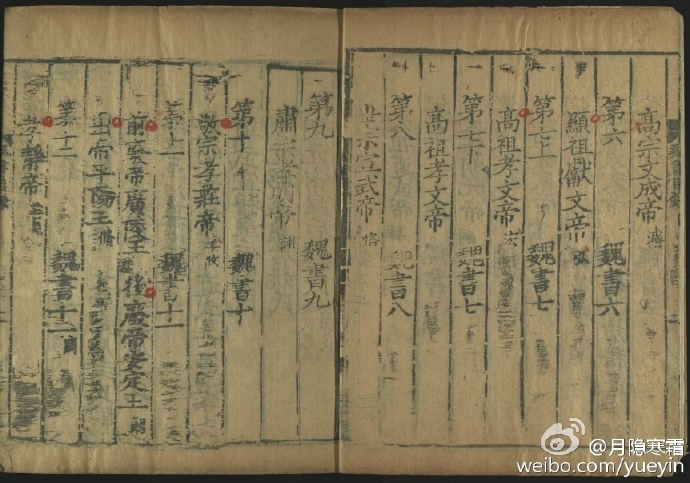 高宗文成帝 濬
第六 魏書六
顯祖獻文帝 弘
第七上 魏書七
高祖孝文帝 宏
第七下 魏書七
高祖孝文帝
第八 魏書八
世宗宣武帝 恪
第九 魏書九
肅宗孝明帝 詡
第十 魏書十
敬宗孝莊帝 子攸
第十一 魏書十一
前廢帝廣陵王 恭 後廢帝安定王 朗
出帝平陽王 脩
第十二 魏書十二
孝靜帝
@月隐寒霜
weibo.com/yueyin